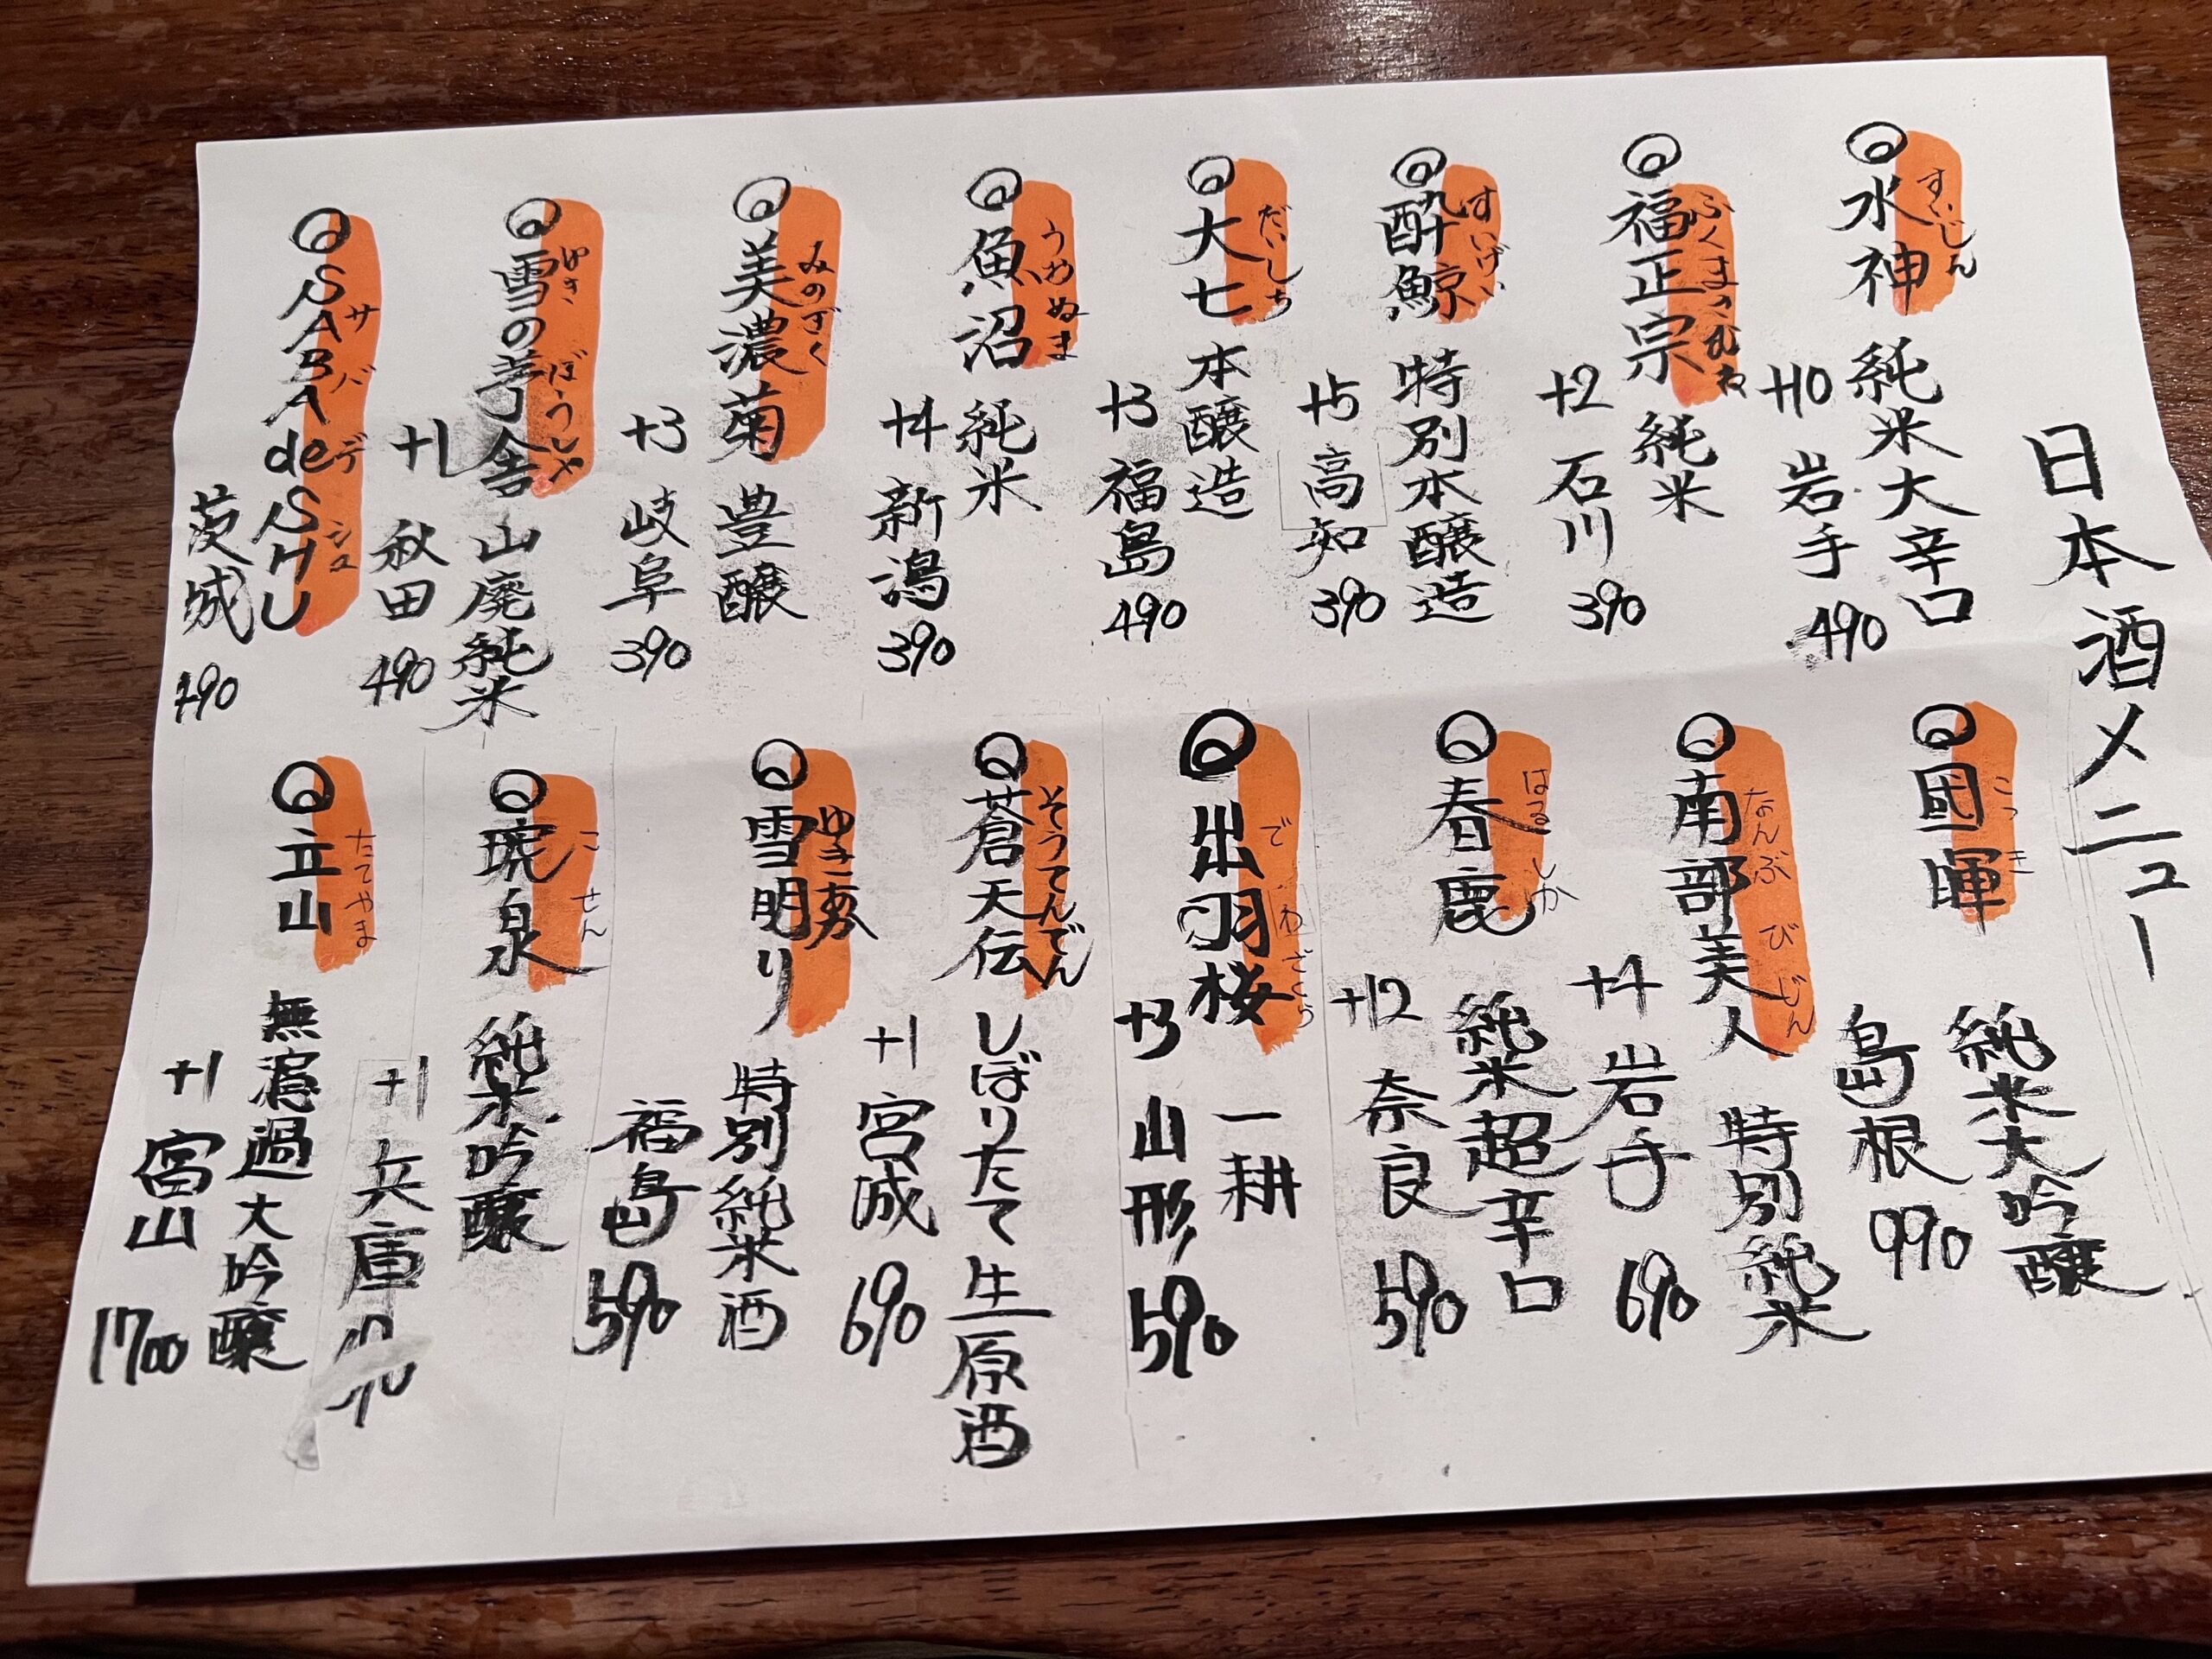 日本酒メニュー
水神 純米大辛口
すいじん
+10 岩手 490
福正宗 純米
ふくまさむね
+2 石川 390
酔鯨 特別本醸造
すいげい
+5 高知 390
大七 本醸造
だいしち
+3 福島 490
魚沼 純米
うおぬま
+4 新潟 390
美濃菊 豊醸
みのぎく
+3 岐阜 390
雪の茅舎 山廃純米
ゆき ぼうしゃ
+1 秋田 490
SABA de SHU
サバ デ シュ
茨城 490
國暉 純米大吟醸
こっき
島根 990
南部美人 特別純米
なんぶびじん
+4 岩手 690
春鹿 純米超辛口
はるしか
+12 奈良 590
出羽桜 一耕
でわざくら
+3 山形 590
蒼天伝 しぼりたて生原酒
そうてんでん
+1 宮城 690
雪明り 特別純米酒
ゆき
福島 590
琥泉 純米吟醸
こせん
+1 兵庫
立山 無濾過大吟醸
たてやま
+1 富山 1700